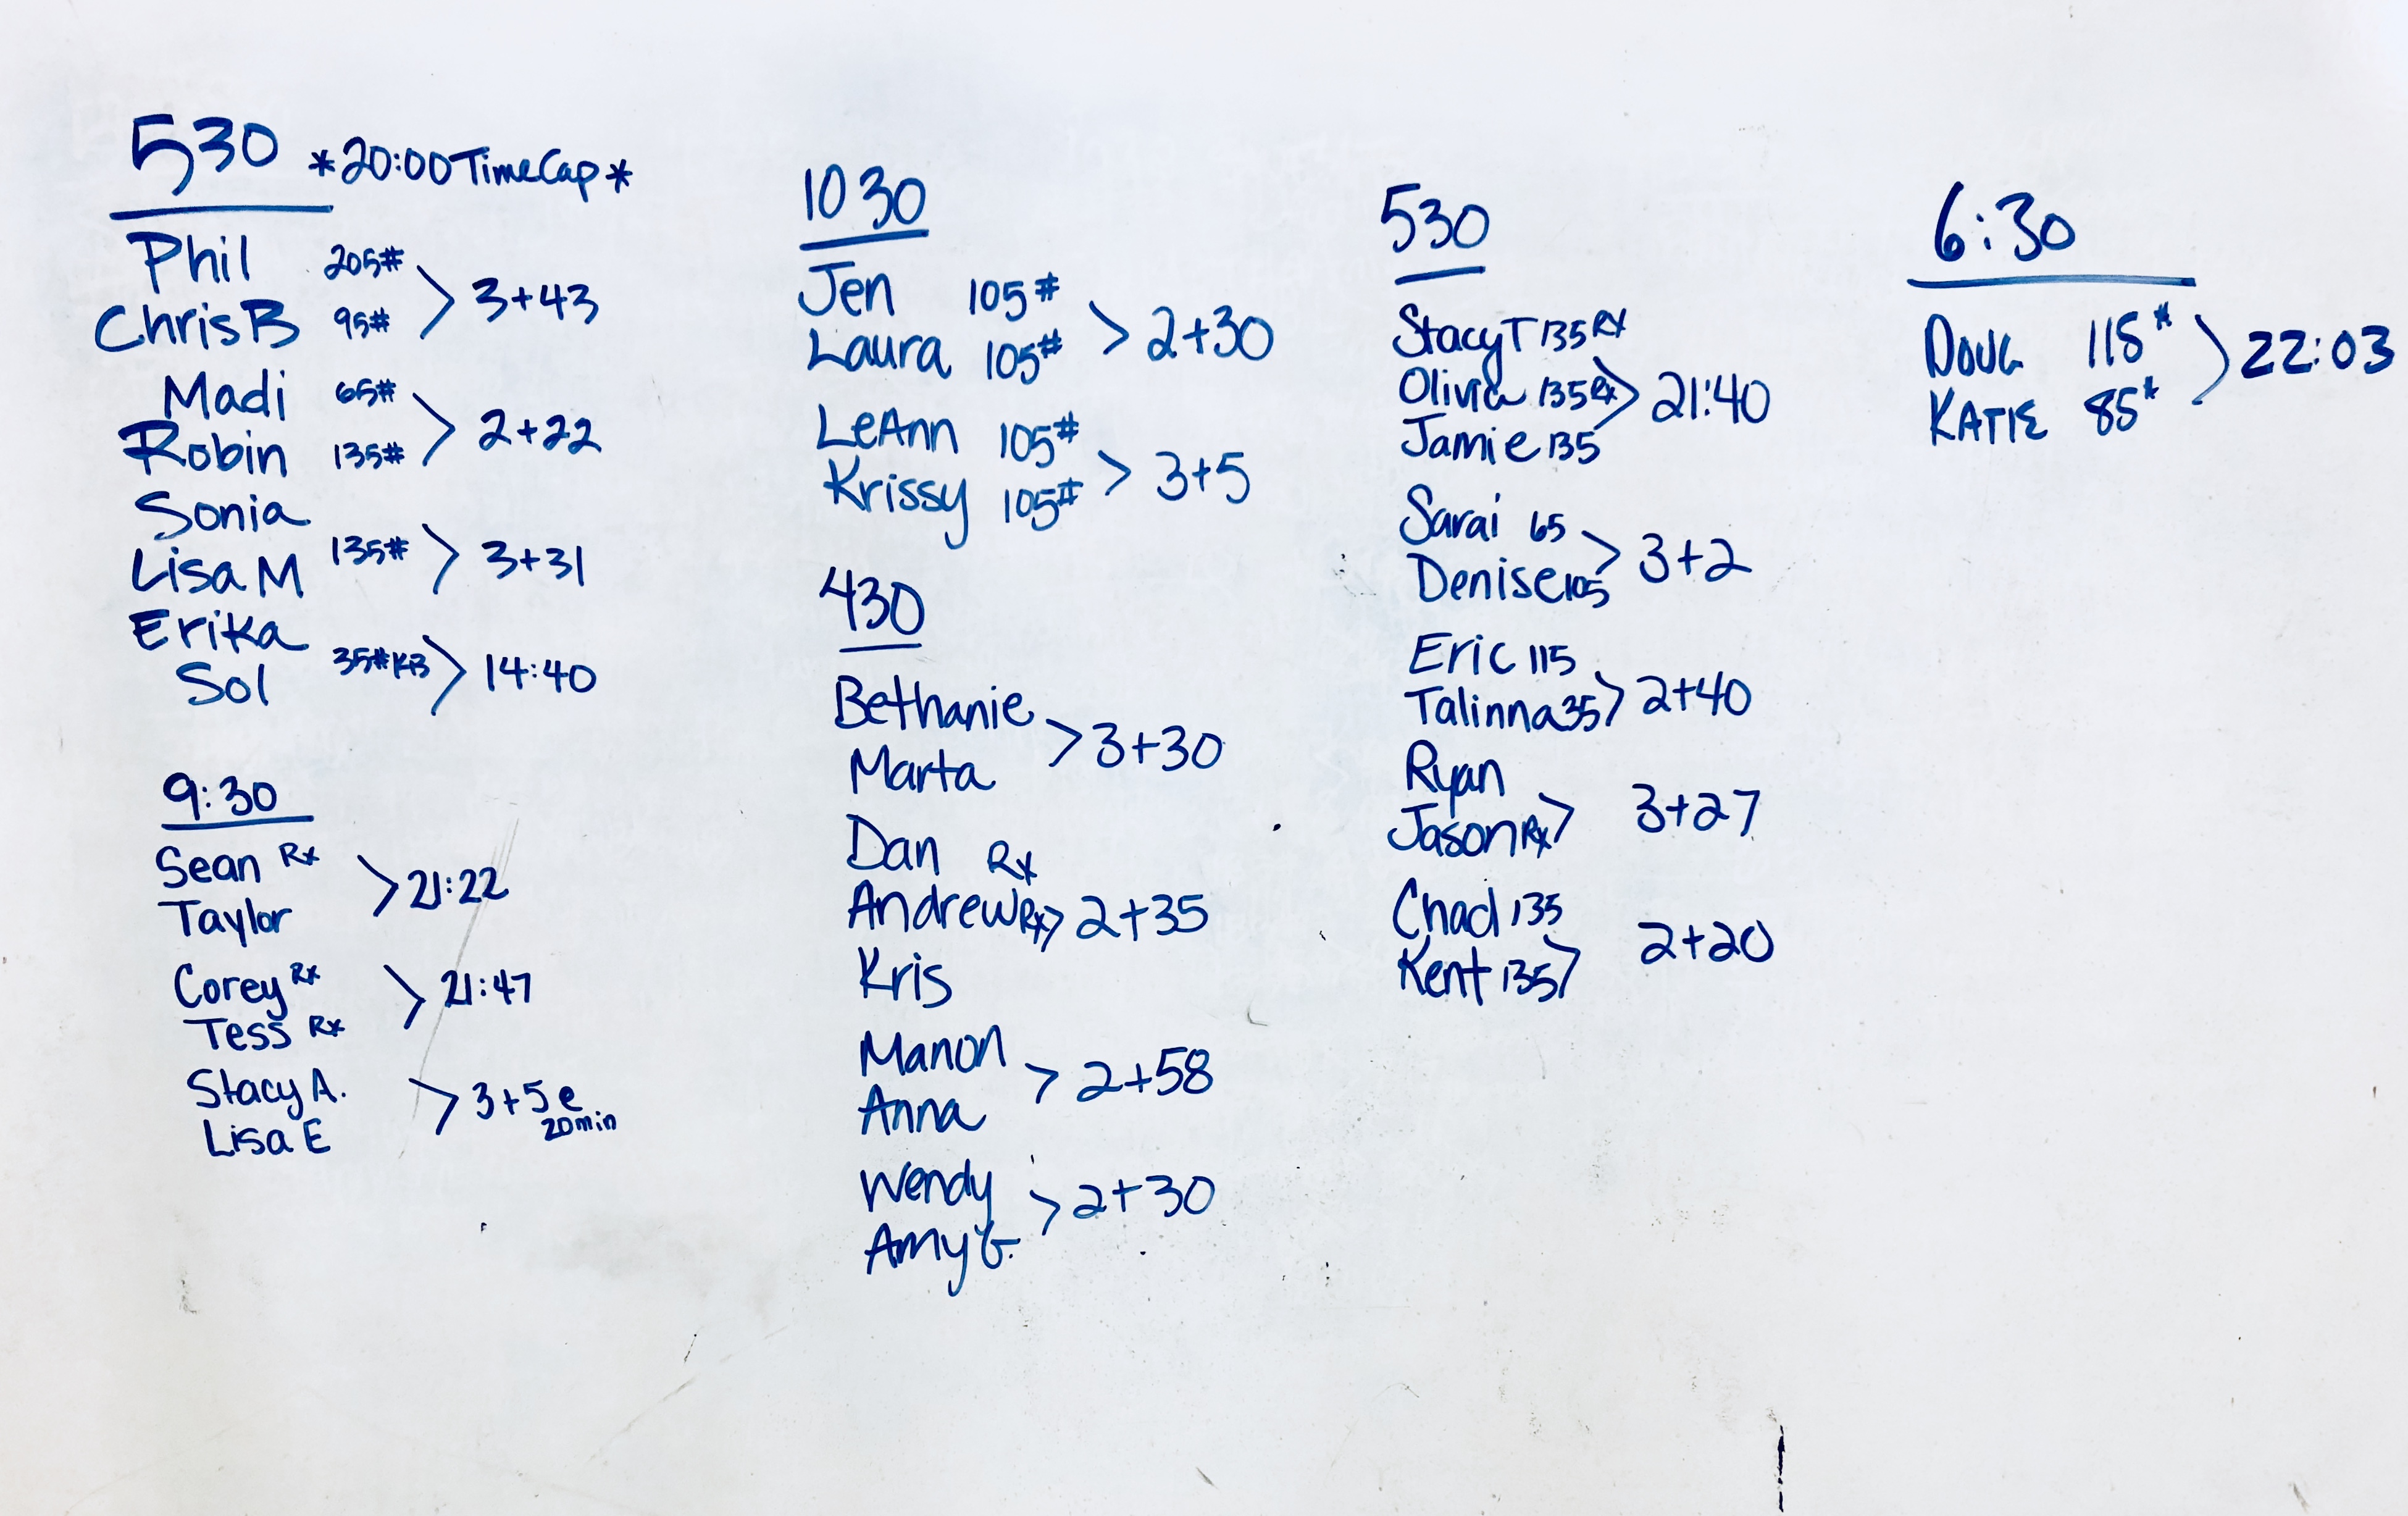 530 *20:00 TimeCap*
Phil 205#
Chris B 95# > 3+43
Madi 65#
Robin 135# > 2+22
Sonia
Lisa M 135# > 3+31
Erika
Sol 35#KB > 14:40
9:30
Sean Rx
Taylor > 21:22
Corey Rx
Tess Rx > 21:47
Stacy A.
Lisa E > 3+5 @
20min
1030
Jen 105#
Laura 105# > 2+30
LeAnn 105#
Krissy 105# > 3+5
430
Bethanie
Marta > 3+30
Dan Rx
Andrew Rx > 2+35
Kris
Manon
Anna > 2+58
Wendy
Amy G. > 2+30
530
Stacy T 135 RX
Olivia 135 Rx > 21:40
Jamie 135
Sarai 65
Denise 105 > 3+2
Eric 115
Talinna 35 > 2+40
Ryan
Jason Rx > 3+27
Chad 135
Kent 135 > 2+20
6:30
DOUG 115# > 22:03
KATIE 85#